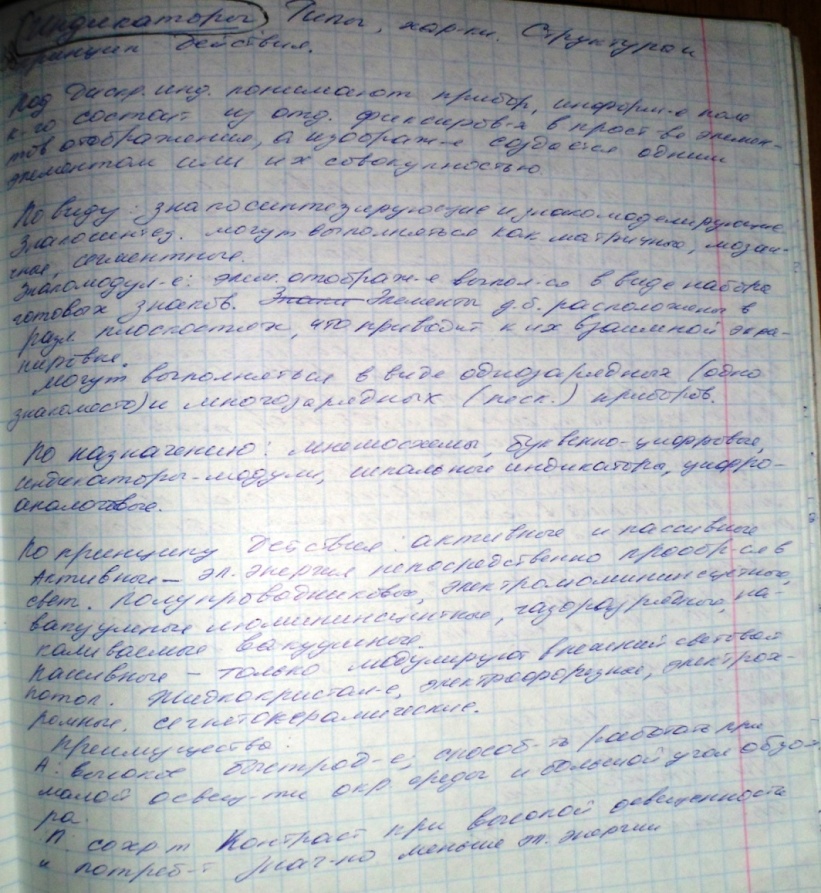 Индикаторы Типы, хар-ки. Структура и
принцип действия.
Под дискр. инд. понимают прибор, информ-е поле
к-го состоит из отд. фиксиров-х в прост-ве элемен-
тов отображения, а изображ-е создается одним
элементом или их совокупностью.
По виду: знакосинтезирующие и знакомоделирующие
Знакосинтез. могут выполняться как матричные, мозаи-
чные, сегментные.
Знакомодул-е: элем. отображ-е выпол-ся в виде набора
готовых знаков. Знаки Элементы д.б. расположены в
разл. плоскостях, что приводит к их взаимной экра-
нировке.
Могут выполняться в виде однозарядных (одно
знакоместо) и многозарядных (неск.) приборов.
По назначению: мнемосхемы, буквенно-цифровые,
индикаторы-модули, шкальные индикаторы, цифро-
аналоговые.
По принципу действия: активные и пассивные
Активные – эл. энергия непосредственно преобр-ся в
свет. Полупроводниковые, электролюминисцентные,
вакуумные люминисцентные, газоразрядные, на-
каливаемые вакуумные.
Пассивные – только модулируют внешний световой
поток. Жидкокристал-е, электрофорезные, электрох-
ромные, сегнетокерамические.
Преимущества:
А: высокое быстрод-е, способ-ть работать при
малой освещ-ти окр. среды и большой угол обзо-
ра.
П: сохр-т контраст при высокой освещенность
и потреб-т знач-но меньше эл. энергии